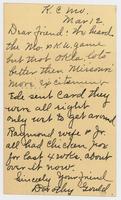 K.C. Mo.
Mar 12
Dear friend: We heard
the Mo. & K.U. game
but that Okla. lots
better then Missouri
more exciteing.
Ede sent card they
urn all right
only wt to get around
Raymond wife & Jr.
all had chicken pox
for last 4 wks. about
over it now.
Sincely your friend
Dorothy Gould